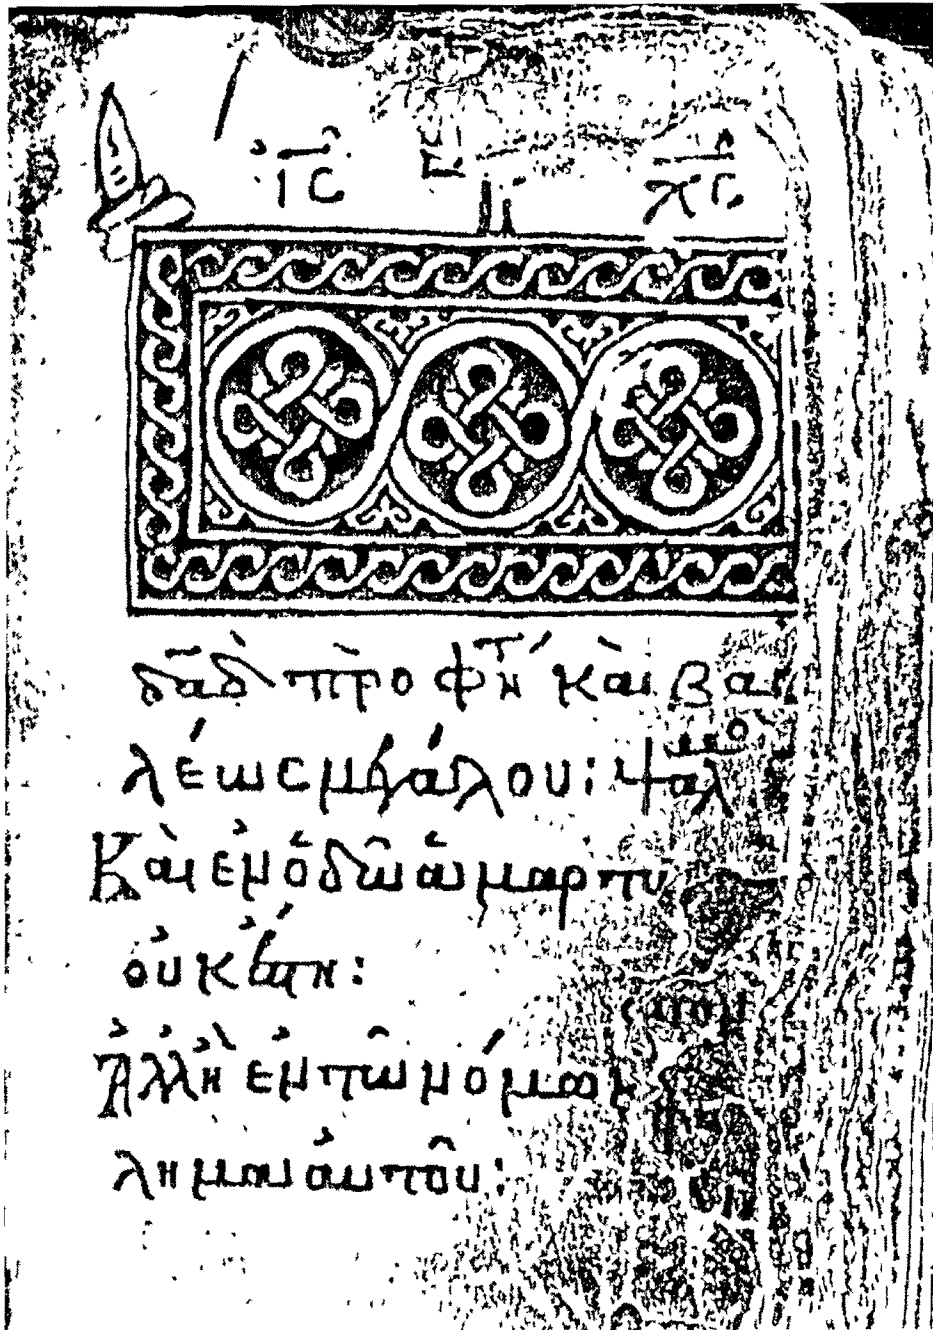 ΙС ΧС
δᾱδ προφη̄τ καὶ βα
λέως μεγάλου: ψαλμο
Καὶ ἐν ὁδῶ ἁμαρτω
οὐκ ἔστη:
Ἀλλ' ἢ ἐν τῶ νόμω κ
λημα αὐτοῦ: